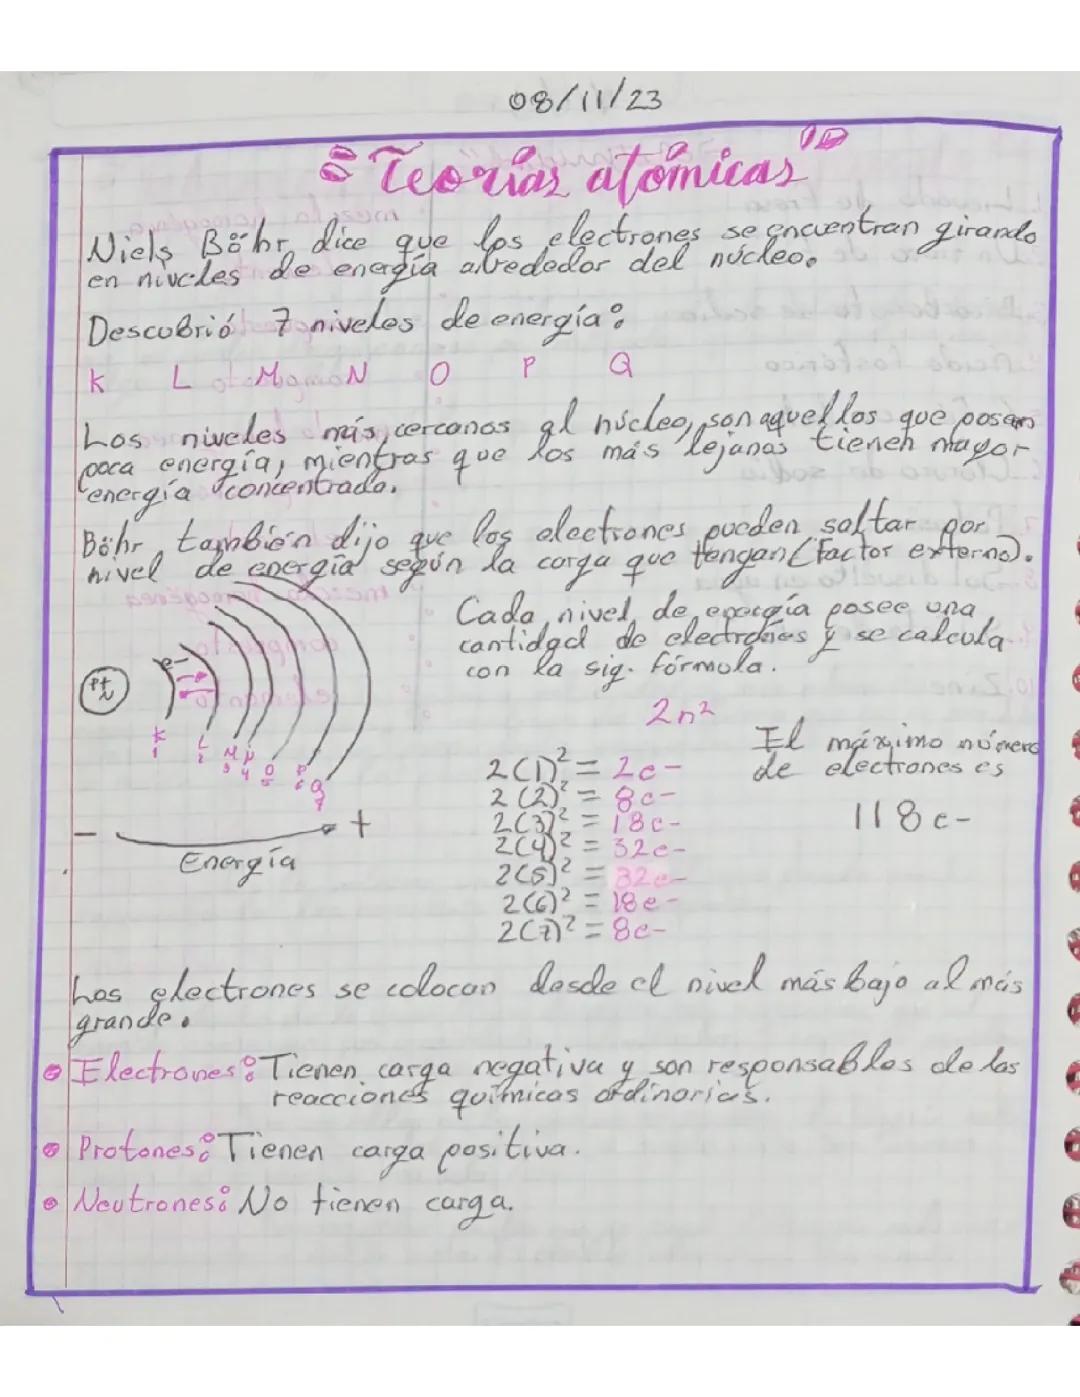 08/11/23
"Teorías atómicas"
Niels Böhr, dice que los electrones se encuentran girando
en niveles de energía alrededor del núcleo.
Descubrió 7 niveles de energía:
K L M N O P Q
Los niveles más cercanos al núcleo, son aquellos que poseen
poca energía, mientras que los más lejanos tienen mayor
energía concentrada.
Böhr también dijo que los electrones pueden saltar por
nivel de energía según la carga que tengan (Factor externo).
Cada nivel de energía posee una
cantidad de electrones y se calcula
con la sig. fórmula.
2n²
P+
N
e-
K L M N O P Q
1 2 3 4 5 6 7
- +
Energía
2(1)² = 2e-
2(2)² = 8e-
2(3)² = 18e-
2(4)² = 32e-
2(5)² = 32e-
2(6)² = 18e-
2(7)² = 8e-
El máximo número
de electrones es
118e-
Los electrones se colocan desde el nivel más bajo al más
grande.
Electrones: Tienen carga negativa y son responsables de las
reacciones químicas ordinarias.
Protones: Tienen carga positiva.
Neutrones: No tienen carga.